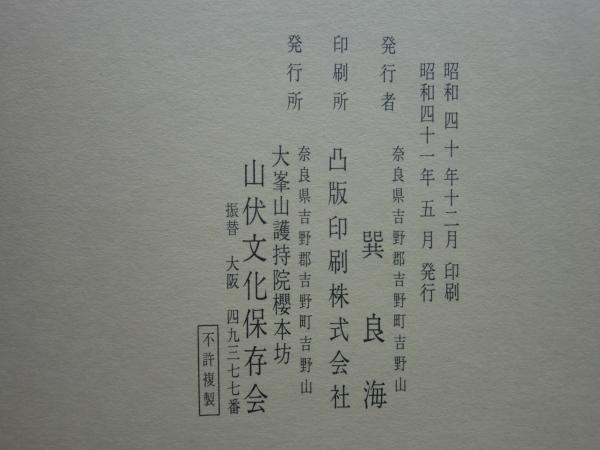 昭和四十年十二月 印刷
昭和四十一年五月 発行
奈良県吉野郡吉野町吉野山
発行者 巽良海
印刷所 凸版印刷株式会社
奈良県吉野郡吉野町吉野山
大峯山護持院櫻本坊
発行所 山伏文化保存会
振替 大阪 四九三七七番
不許複製